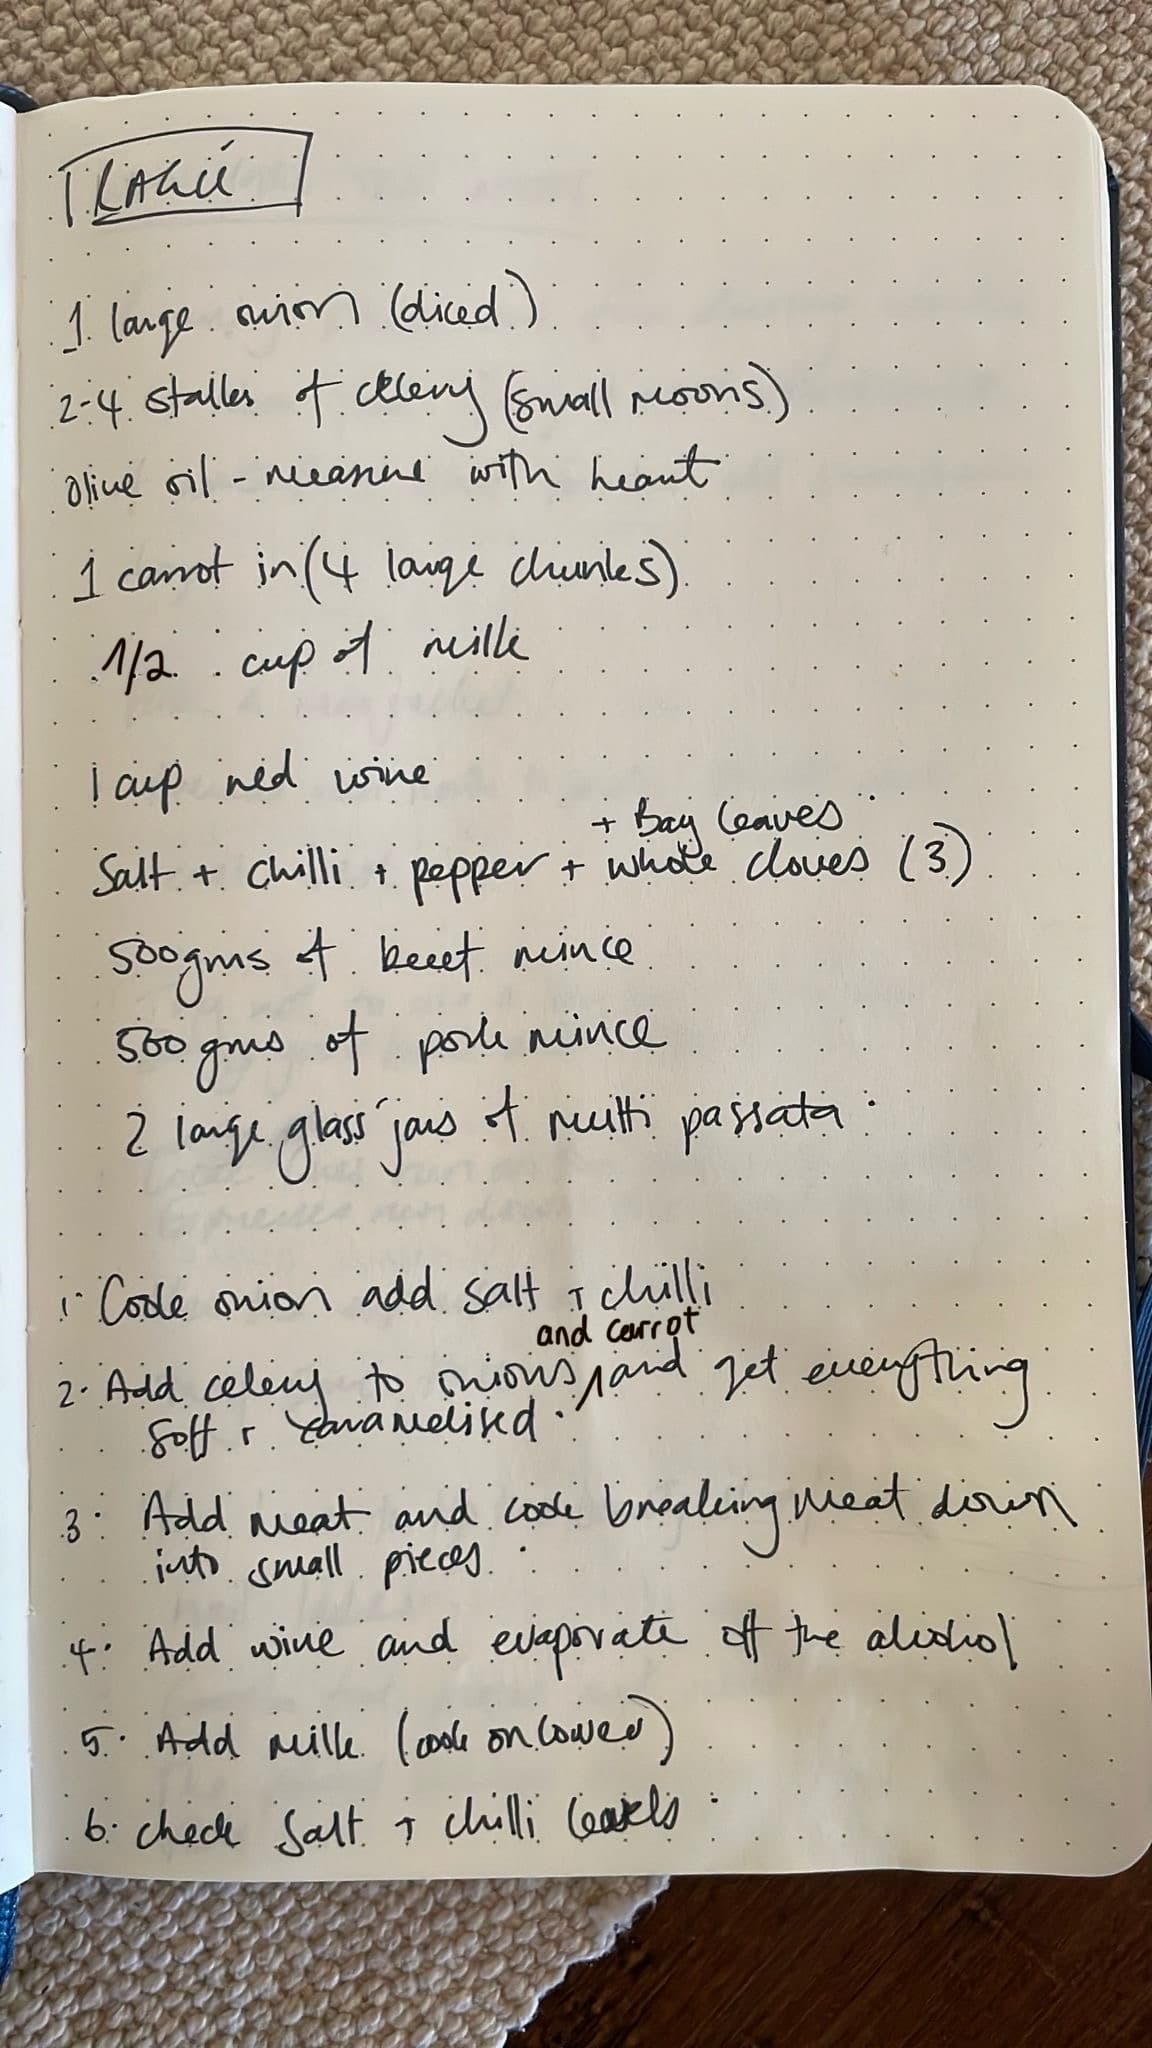 RAGÚ
1 large onion (diced)
2-4 stalks of celery (small moons)
Olive oil - measure with heart
1 carrot in (4 large chunks)
1/2 cup of milk
1 cup red wine
+ Bay leaves
Salt + chilli + pepper + whole cloves (3)
500gms of beef mince
500gms of pork mince
2 large glass jars of mutti passata.
1. Cook onion add salt + chilli
and carrot
2. Add celery to onions, and get everything
soft + caramelised.
3. Add meat and cook breaking meat down
into small pieces.
4. Add wine and evaporate off the alcohol
5. Add milk (cook on lower)
6. check salt + chilli levels.